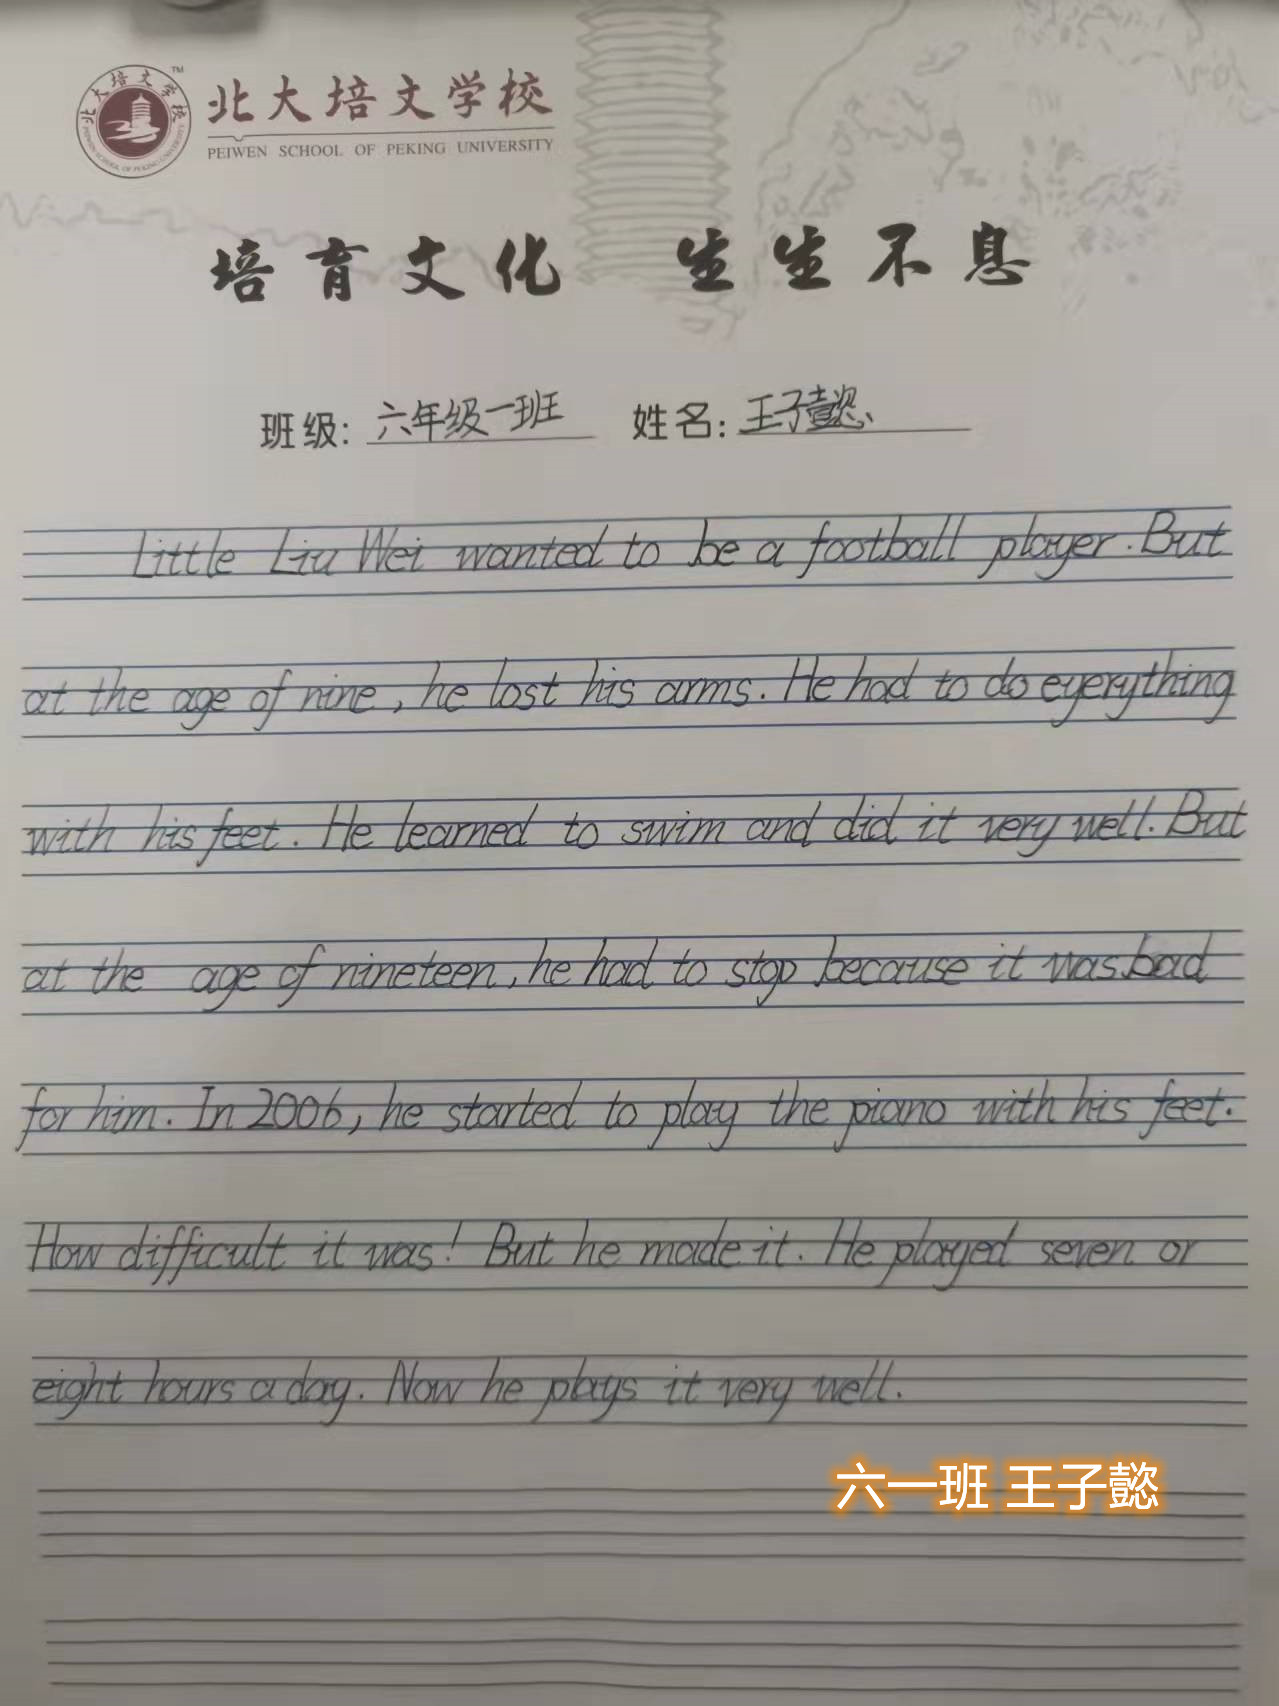 北大培文学校
TM
北大培文学校
PEIWEN SCHOOL OF PEKING UNIVERSITY
PEIWEN SCHOOL OF PEKING UNIVERSITY
培育文化 生生不息
班级: 六年级一班 姓名: 王子懿
Little Liu Wei wanted to be a football player. But
at the age of nine, he lost his arms. He had to do everything
with his feet. He learned to swim and did it very well. But
at the age of nineteen, he had to stop because it was bad
for him. In 2006, he started to play the piano with his feet.
How difficult it was! But he made it. He played seven or
eight hours a day. Now he plays it very well.
六一班 王子懿